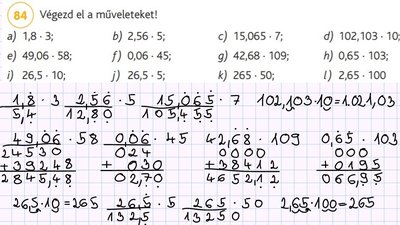 84 Végezd el a műveleteket!
a) 1,8 · 3; b) 2,56 · 5; c) 15,065 · 7; d) 102,103 · 10;
e) 49,06 · 58; f) 0,06 · 45; g) 42,68 · 109; h) 0,65 · 103;
i) 26,5 · 10; j) 26,5 · 5; k) 265 · 50; l) 2,65 · 100
1,8 · 3 2,56 · 5 15,065 · 7 102,103·10=1.021,03
5,4 12,80 105,455
49,06 · 58 0,06 · 45 42,68 · 109 0,65 · 103
24530 024 0000 0000
+39248 +030 +38412 +0195
2845,48 02,70 4652,12 066,95
26,5·10=265 26,5 · 5 265 · 50 2,65·100=265
132,5 13250